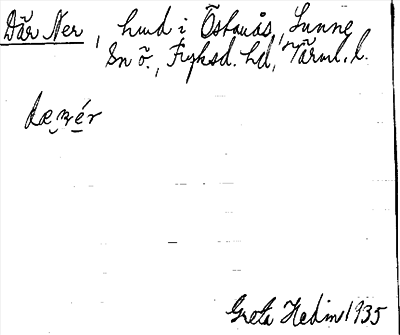 Där Ner, hmd i Östanås, Sunne
sn ö., Fryksd. hd, Värml. l.
dæ̯ nér
Greta Hedin 1935